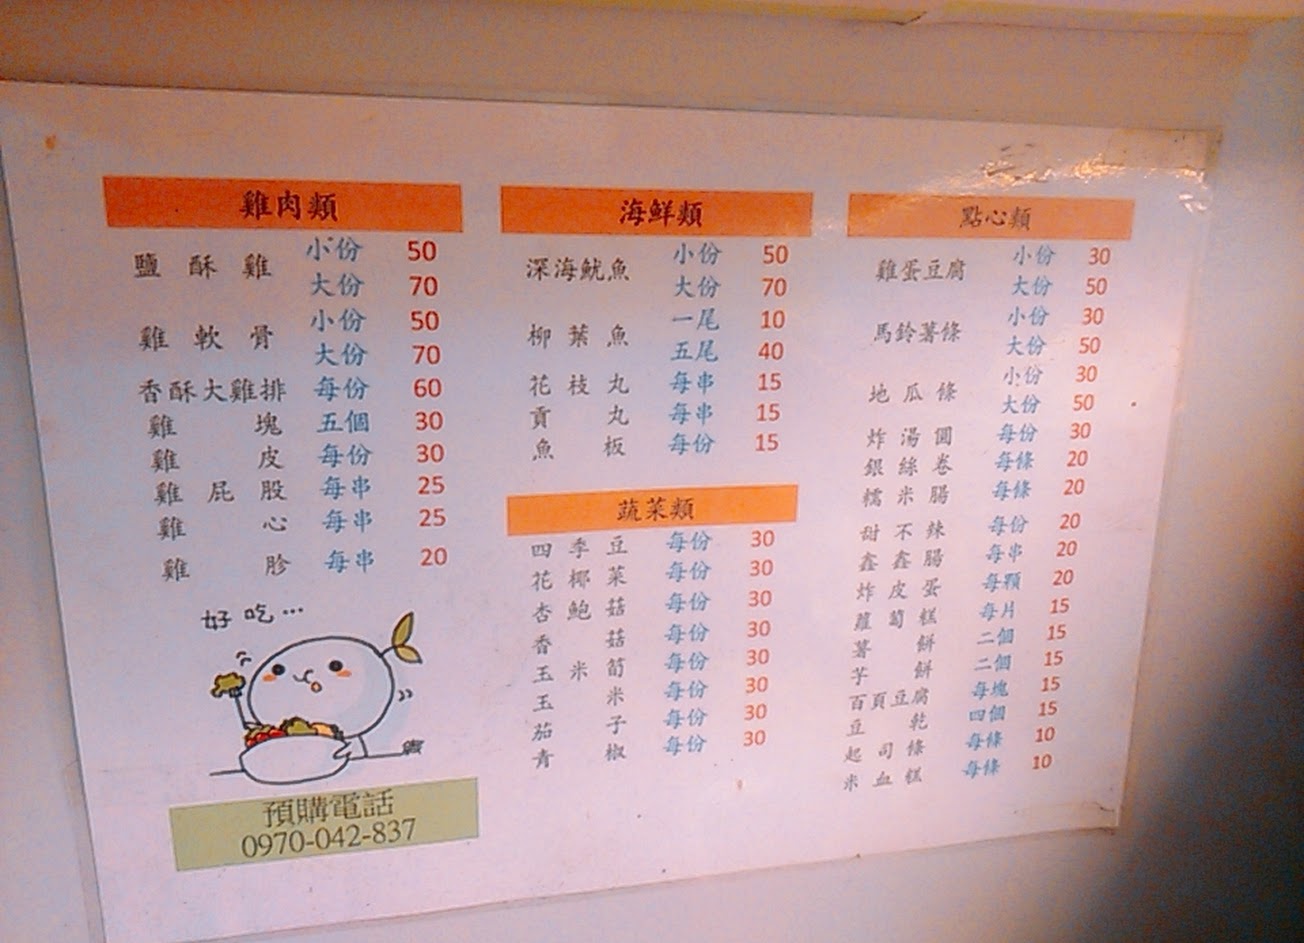 雞肉類
鹽酥雞 小份 50
大份 70
雞軟骨 小份 50
大份 70
香酥大雞排 每份 60
雞塊 五個 30
雞皮 每份 30
雞屁股 每串 25
雞心 每串 25
雞胗 每串 20
好吃…
預購電話
0970-042-837
海鮮類
深海魷魚 小份 50
大份 70
柳葉魚 一尾 10
五尾 40
花枝丸 每串 15
貢丸 每串 15
魚板 每份 15
蔬菜類
四季豆 每份 30
花椰菜 每份 30
杏鮑菇 每份 30
香菇 每份 30
玉米筍 每份 30
玉米 每份 30
茄子 每份 30
青椒 每份 30
點心類
雞蛋豆腐 小份 30
大份 50
馬鈴薯條 小份 30
大份 50
地瓜條 小份 30
大份 50
炸湯圓 每份 30
銀絲卷 每條 20
糯米腸 每條 20
甜不辣 每份 20
鑫鑫腸 每串 20
炸皮蛋 每顆 20
蘿蔔糕 每片 15
薯餅 二個 15
芋餅 二個 15
百頁豆腐 每塊 15
豆乾 四個 15
起司條 每條 10
米血糕 每條 10